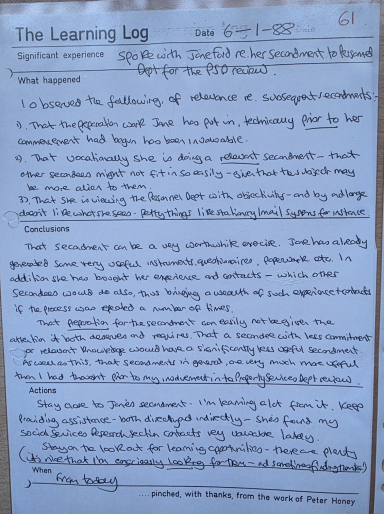 61
The Learning Log Date 6-1-88
Significant experience spoke with Jane Ford re. her secondment to Personnel
Dpt for the PSD review.
What happened
I observed the following, of relevance re. subsequent secondments:-
1). That the preparation work Jane has put in, technically prior to her
commencement had begun has been invaluable.
2). That vocationally she is doing a relevant secondment - that
other secondees might not fit in so easily - given that the subject may
be more alien to them.
3). That she is viewing the Personnel Dept with objectivity - and by and large
doesn't like what she sees. - petty things like stationary/mail systems for instance
Conclusions
That secondment can be a very worthwhile exercise. Jane has already
generated some very useful instruments, questionnaires, paperwork etc. In
addition she has brought her experience and contacts - which other
secondees would do also, thus bringing a wealth of such experience + contacts
if the process was repeated a number of times.
That preparation for the secondment can easily not be given the
attention it both deserves and requires. That a secondee with less commitment
or relevant knowledge would have a significantly less useful secondment.
As well as this, that secondments in general, are very much more useful
than I had thought prior to my involvement in to Property Services Dept review.
Actions
Stay close to Jane's secondment - I'm learning a lot from it. Keep
providing assistance - both directly and indirectly - she's found my
Social Services Research Section contacts very valuable lately.
Stay on the look out for learning opportunities - there are plenty
(it's nice that I'm consciously looking for them - and sometimes finding them!)
When from today
.....pinched, with thanks, from the work of Peter Honey